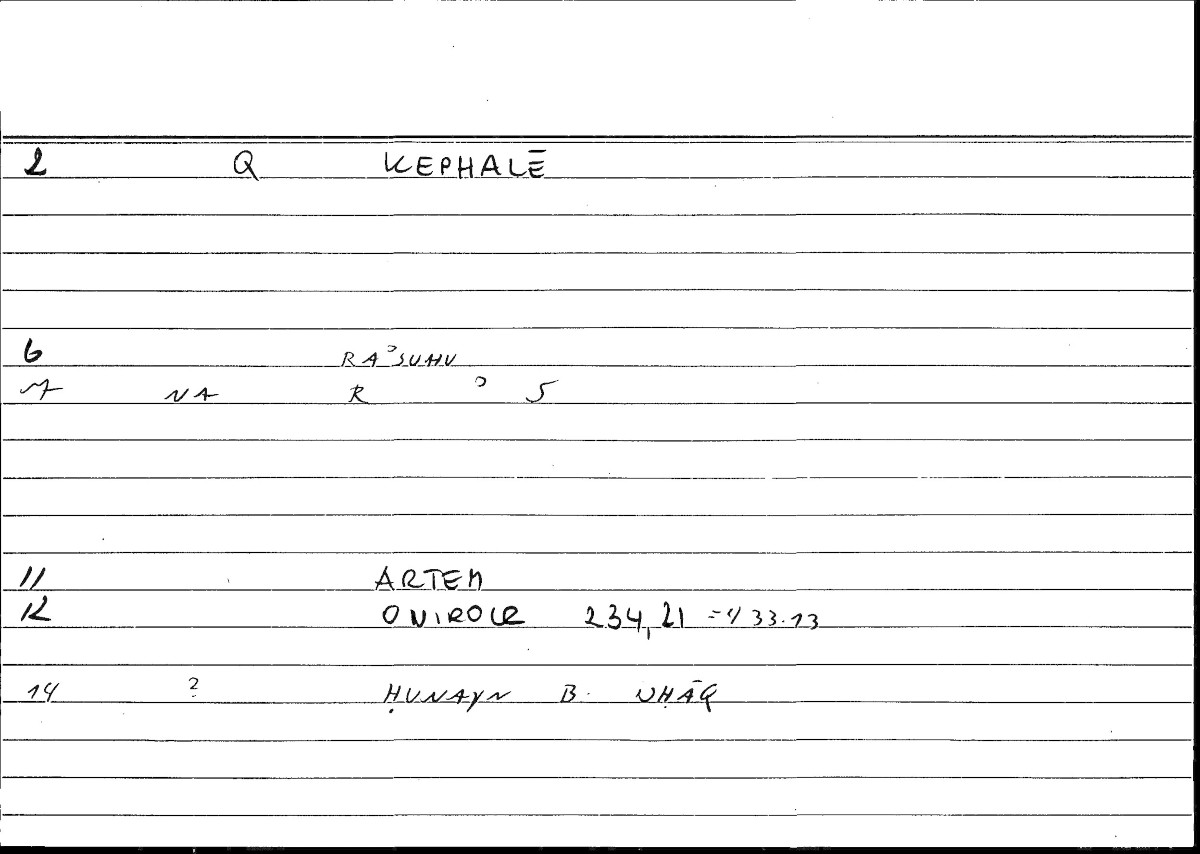 2 Q KEPHALĒ
6 RAʾSUHU
7 NA R ʾ S
11 ARTEM
12 ONIROCR 234,21 = 433.13
14 ? ḤUNAYN B. ISḤĀQ